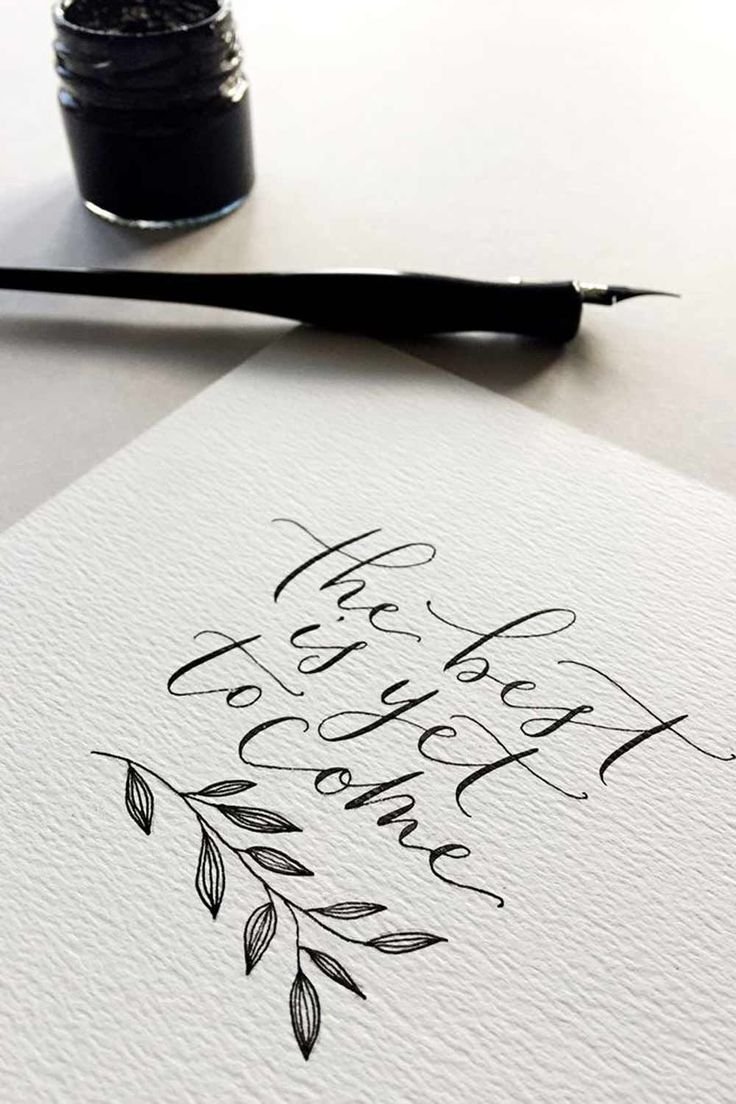 the best
is yet
to come